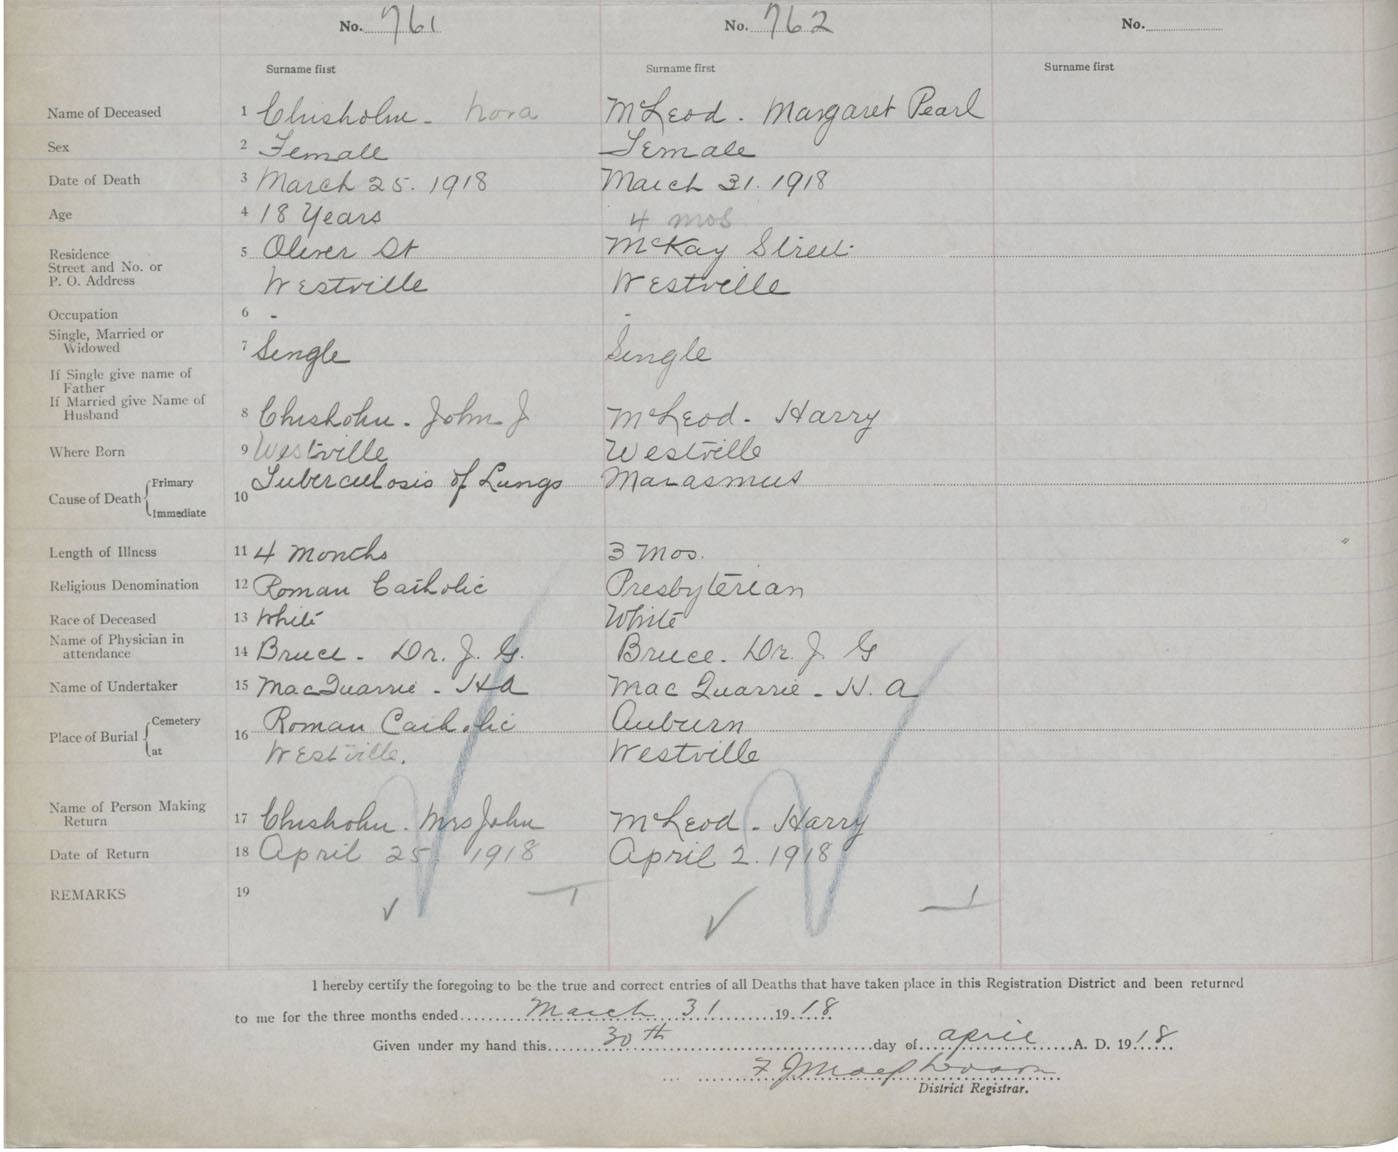 No. 761 No. 762 No.
Surname first Surname first Surname first
Name of Deceased 1 Chisholm - Nora McLeod. Margaret Pearl
Sex 2 Female Female
Date of Death 3 March 25. 1918 March 31. 1918
Age 4 18 Years 4 mos
Residence 5 Oliver St McKay Street
Street and No. or
P. O. Address Westville Westville
Occupation 6 - -
Single, Married or
Widowed 7 Single Single
If Single give name of
Father
If Married give Name of
Husband 8 Chisholm. John J McLeod - Harry
Where Born 9 Westville Westville
Cause of Death Primary 10 Tuberculosis of Lungs Marasmus
Immediate
Length of Illness 11 4 months 3 Mos.
Religious Denomination 12 Roman Catholic Presbyterian
Race of Deceased 13 White White
Name of Physician in
attendance 14 Bruce - Dr. J. G. Bruce. Dr. J. G
Name of Undertaker 15 MacQuarrie - H A MacQuarrie - H. A
Place of Burial Cemetery 16 Roman Catholic Auburn
at Westville. Westville
Name of Person Making
Return 17 Chisholm. Mrs John McLeod - Harry
Date of Return 18 April 25, 1918 April 2. 1918
REMARKS 19
I hereby certify the foregoing to be the true and correct entries of all Deaths that have taken place in this Registration District and been returned
to me for the three months ended March 31 1918.
Given under my hand this 30th day of April A. D. 1918.
F J Macpherson
District Registrar.